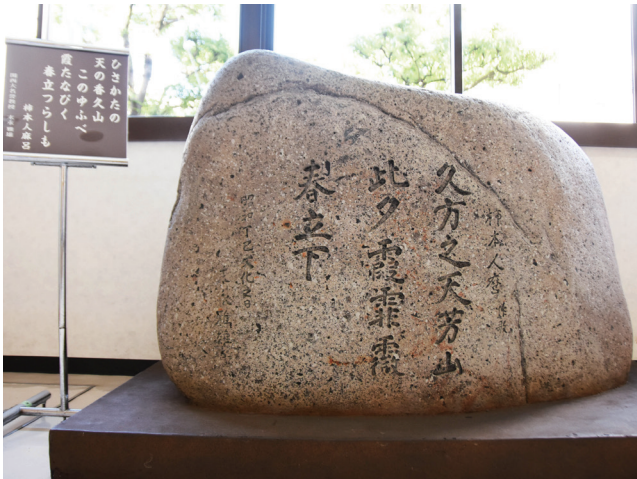 ひさかたの
天の香久山
このゆふべ
霞たなびく
春立つらしも
柿本人麻呂
柿本人麿
久方之天芳山
此夕霞霏霺
春立下
昭和丁巳文化の日